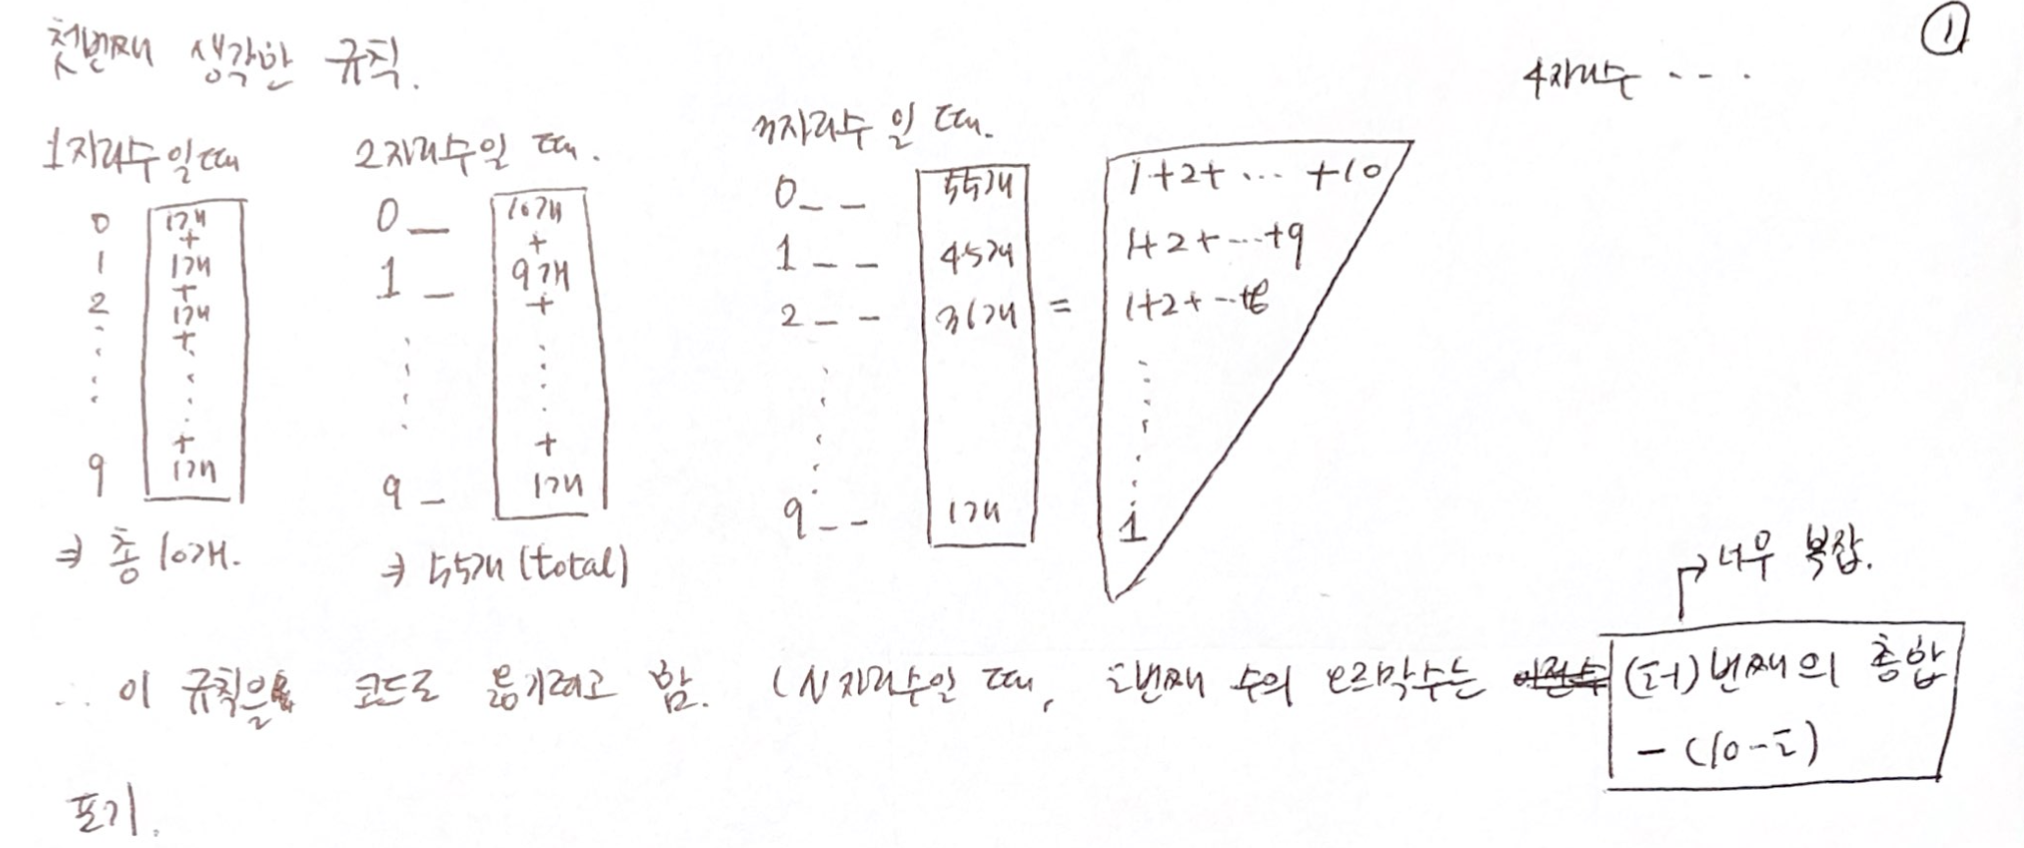 ①
첫번째 생각한 규칙.
4자리수 ....
1자리수일때
0 1개
+
1 1개
+
2 1개
+
+
9 1개
⇒ 총 10개.
2자리수일 때.
0_ 10개
+
1_ 9개
+
+
9_ 1개
⇒ 55개 (total)
n자리수 일 때.
0__ 55개 1+2+ ... +10
1__ 45개 1+2+...+9
2__ 36개 = 1+2+...+8
9__ 1개 1
→ 너무 복잡.
∴ 이 규칙을 코드로 옮기려고 함. (N자리수일 때, i번째 수의 오르막수는 이전수 (i-1)번째의 총합
- (10-i)
포기.